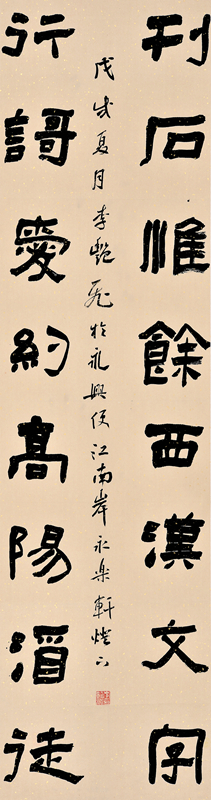 刊石惟餘西漢文字
行謌愛約高陽酒徒
戊戌夏月李艷飛於永興便江南岸永樂軒燈下